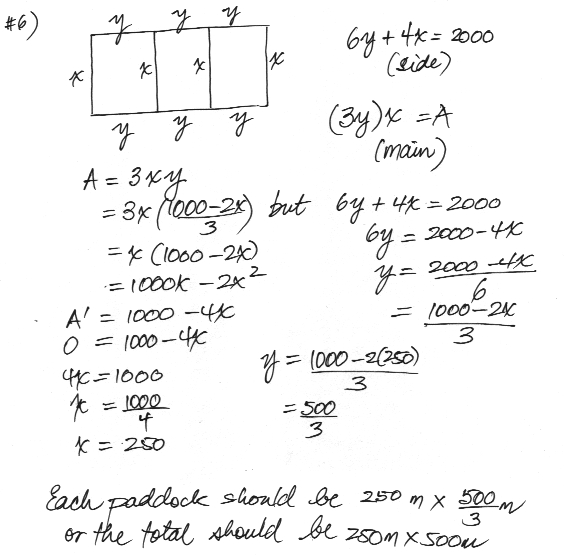 #6)
y y y
x x x x
y y y
6y + 4x = 2000
(side)
(3y)x = A
(main)
A = 3xy
= 3x (1000-2x / 3) but 6y + 4x = 2000
= x (1000 - 2x)
= 1000x - 2x²
A' = 1000 - 4x
0 = 1000 - 4x
4x = 1000
x = 1000 / 4
x = 250
6y = 2000 - 4x
y = 2000 - 4x / 6
= 1000 - 2x / 3
y = 1000 - 2(250) / 3
= 500 / 3
Each paddock should be 250 m x 500 / 3 m
or the total should be 250m x 500m